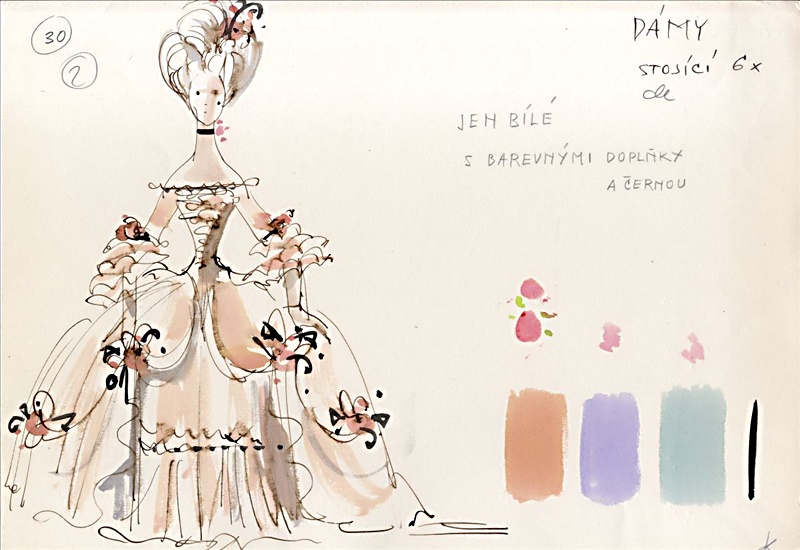 30
2
DÁMY
STOJÍCÍ 6x
JEN BÍLÉ
S BAREVNÝMI DOPLŇKY
A ČERNOU